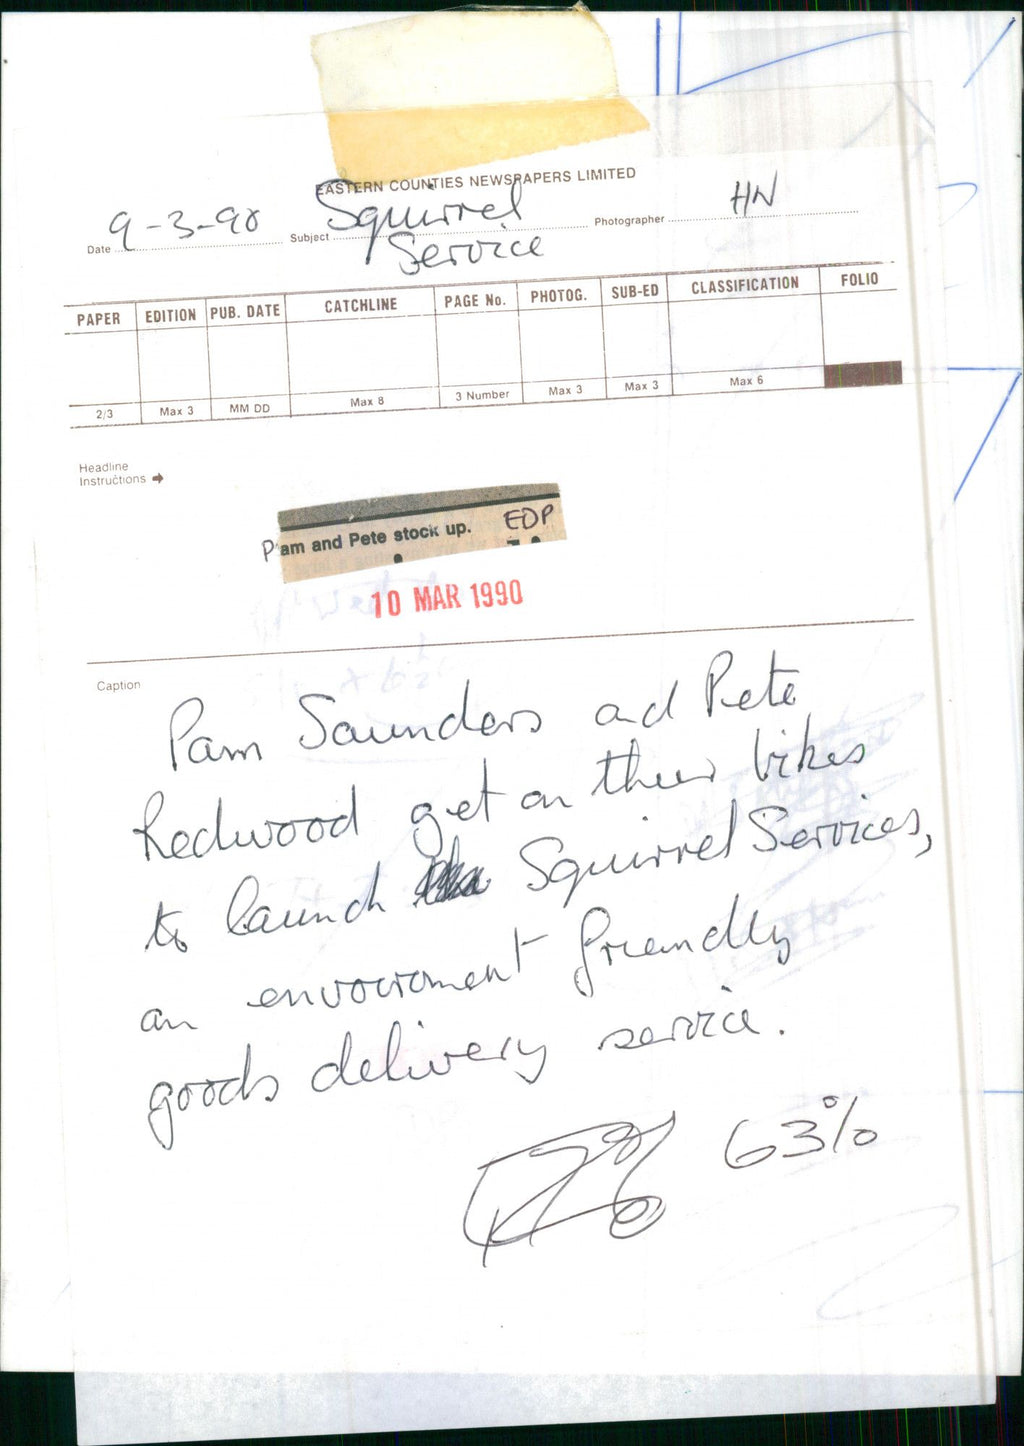 EASTERN COUNTIES NEWSPAPERS LIMITED
Date 9-3-90 Subject Squirrel Service Photographer HN
PAPER EDITION PUB. DATE CATCHLINE PAGE No. PHOTOG. SUB-ED CLASSIFICATION FOLIO
2/3 Max 3 MM DD Max 8 3 Number Max 3 Max 3 Max 6
Headline
Instructions
Pam and Pete stock up. EDP
10 MAR 1990
Caption
Pam Saunders and Pete
Redwood get on their bikes
to launch Squirrel Services,
an enviroment friendly
goods delivery service.
63%